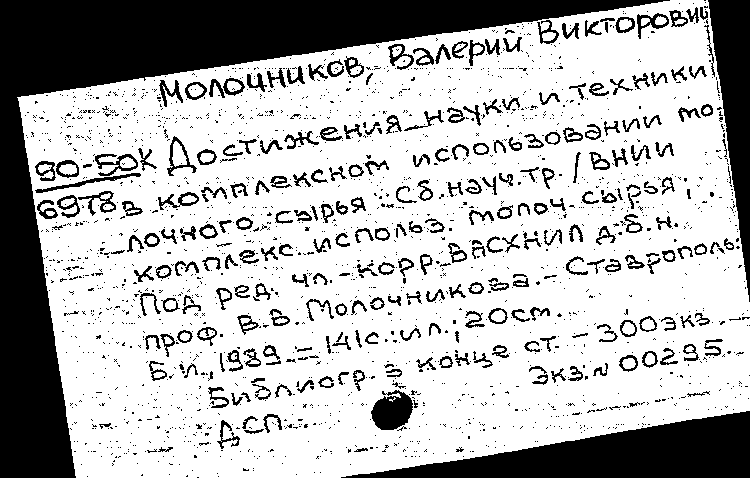 Молочников, Валерий Викторович
90-50к Достижения науки и техники
6978 в комплексном использовании мо-
лочного сырья: Сб.науч.тр. / ВНИИ
комплекс. использ. молоч. сырья;
Под ред. чл.-корр. ВАСХНИЛ д.б.н.
проф. В.В. Молочникова. - Ставрополь:
Б.и., 1989. - 141с.: ил.; 20см.
Библиогр. в конце ст. - 300экз.
ДСП Экз.N 00295.